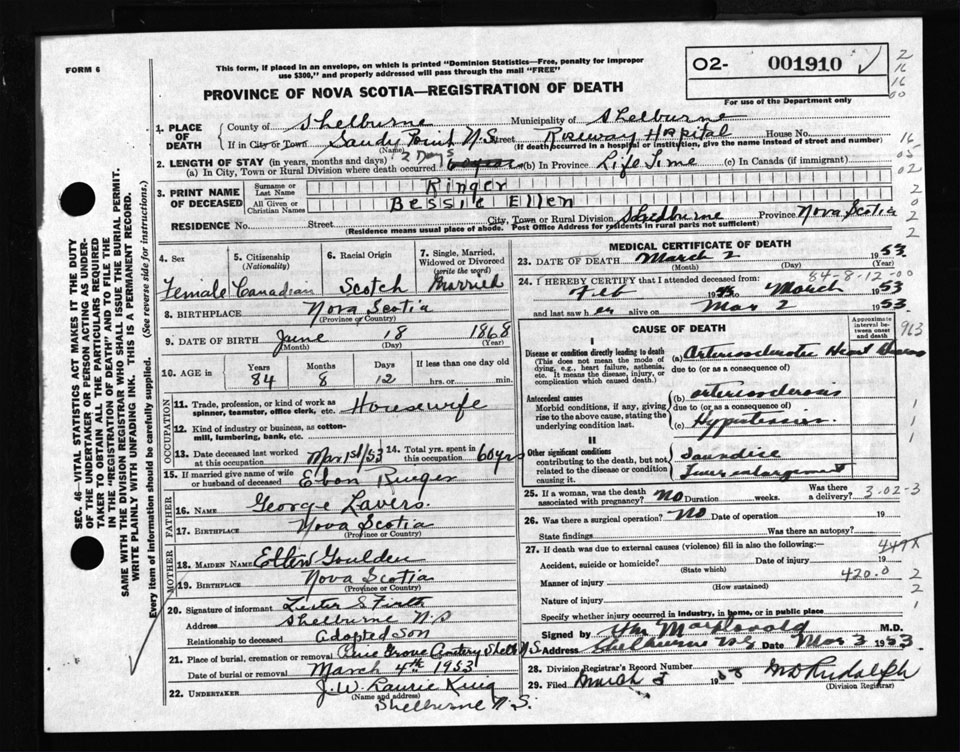 FORM 6
This form, if placed in an envelope, on which is printed "Dominion Statistics—Free, penalty for improper
use $300," and properly addressed will pass through the mail "FREE"
PROVINCE OF NOVA SCOTIA—REGISTRATION OF DEATH
02- 001910
For use of the Department only
2
16
16
00
1. PLACE OF DEATH
County of Shelburne Municipality of Shelburne
If in City or Town Sandy Point N.S. Street Roseway Hospital House No.
(Name) (If death occurred in a hospital or institution, give the name instead of street and number)
16
05
02
2. LENGTH OF STAY (in years, months and days)
(a) In City, Town or Rural Division where death occurred 2 Days (b) In Province Life Time (c) In Canada (if immigrant)
3. PRINT NAME OF DECEASED
Surname or Last Name Ringer
All Given or Christian Names Bessie Ellen
2
0
2
2
RESIDENCE No. Street City, Town or Rural Division Shelburne Province Nova Scotia
(Residence means usual place of abode. Post Office Address for residents in rural parts not sufficient)
4. Sex Female
5. Citizenship (Nationality) Canadian
6. Racial Origin Scotch
7. Single, Married, Widowed or Divorced (write the word) Married
8. BIRTHPLACE Nova Scotia
(Province or Country)
9. DATE OF BIRTH June 18 1868
(Month) (Day) (Year)
10. AGE in Years 84 Months 8 Days 12 If less than one day old hrs. or min.
OCCUPATION
11. Trade, profession, or kind of work as spinner, teamster, office clerk, etc. Housewife
12. Kind of industry or business, as cotton-mill, lumbering, bank, etc.
13. Date deceased last worked at this occupation Mar 1st/53 14. Total yrs. spent in this occupation 60 yrs
15. If married give name of wife or husband of deceased Ebon Ringer
FATHER
16. NAME George Lavers.
17. BIRTHPLACE Nova Scotia
(Province or Country)
MOTHER
18. MAIDEN NAME Ellen Goulden
19. BIRTHPLACE Nova Scotia
(Province or Country)
20. Signature of informant Lester S. Firth
Address Shelburne N.S
Relationship to deceased Adopted Son
21. Place of burial, cremation or removal Pine Grove Cemetery Shelb N.S
Date of burial or removal March 4th 1953
22. UNDERTAKER J. W. Laurie King
(Name and address)
Shelburne N.S.
MEDICAL CERTIFICATE OF DEATH
23. DATE OF DEATH March 2 1953
(Month) (Day) (Year)
84-8-12-00
24. I HEREBY CERTIFY that I attended deceased from:
Feb 19 to March 1953
and last saw her alive on Mar 2 1953.
CAUSE OF DEATH
Approximate interval between onset and death
963
I
Disease or condition directly leading to death
(This does not mean the mode of dying, e.g., heart failure, asthenia, etc. It means the disease, injury, or complication which caused death.)
(a) Arteriosclerotic Heart
due to (or as a consequence of)
Antecedent causes
Morbid conditions, if any, giving rise to the above cause, stating the underlying condition last.
(b) arteriosclerosis
due to (or as a consequence of)
(c) Hypertension.
1
1
1
II
Other significant conditions
contributing to the death, but not related to the disease or condition causing it.
Jaundice
Liver enlargement
25. If a woman, was the death associated with pregnancy? No Duration weeks. Was there a delivery? 3.02-3
26. Was there a surgical operation? No Date of operation 19
State findings Was there an autopsy?
27. If death was due to external causes (violence) fill in also the following:—
Accident, suicide or homicide? Date of injury 19
(State which)
Manner of injury 420.0
(How sustained)
Nature of injury
Specify whether injury occurred in industry, in home, or in public place
2
2
1
Signed by Wm MacDonald M.D.
Address Shelburne N.S Date Mar 3 1953
28. Division Registrar's Record Number
29. Filed March 19 53 Rudolph
(Division Registrar)
SEC. 46—VITAL STATISTICS ACT MAKES IT THE DUTY
OF THE UNDERTAKER OR PERSON ACTING AS UNDER-
TAKER TO OBTAIN ALL THE PARTICULARS REQUIRED
IN THE "REGISTRATION OF DEATH" AND TO FILE THE
SAME WITH THE DIVISION REGISTRAR WHO SHALL ISSUE THE BURIAL PERMIT.
WRITE PLAINLY WITH UNFADING INK. THIS IS A PERMANENT RECORD.
Every item of information should be carefully supplied. (See reverse side for instructions.)